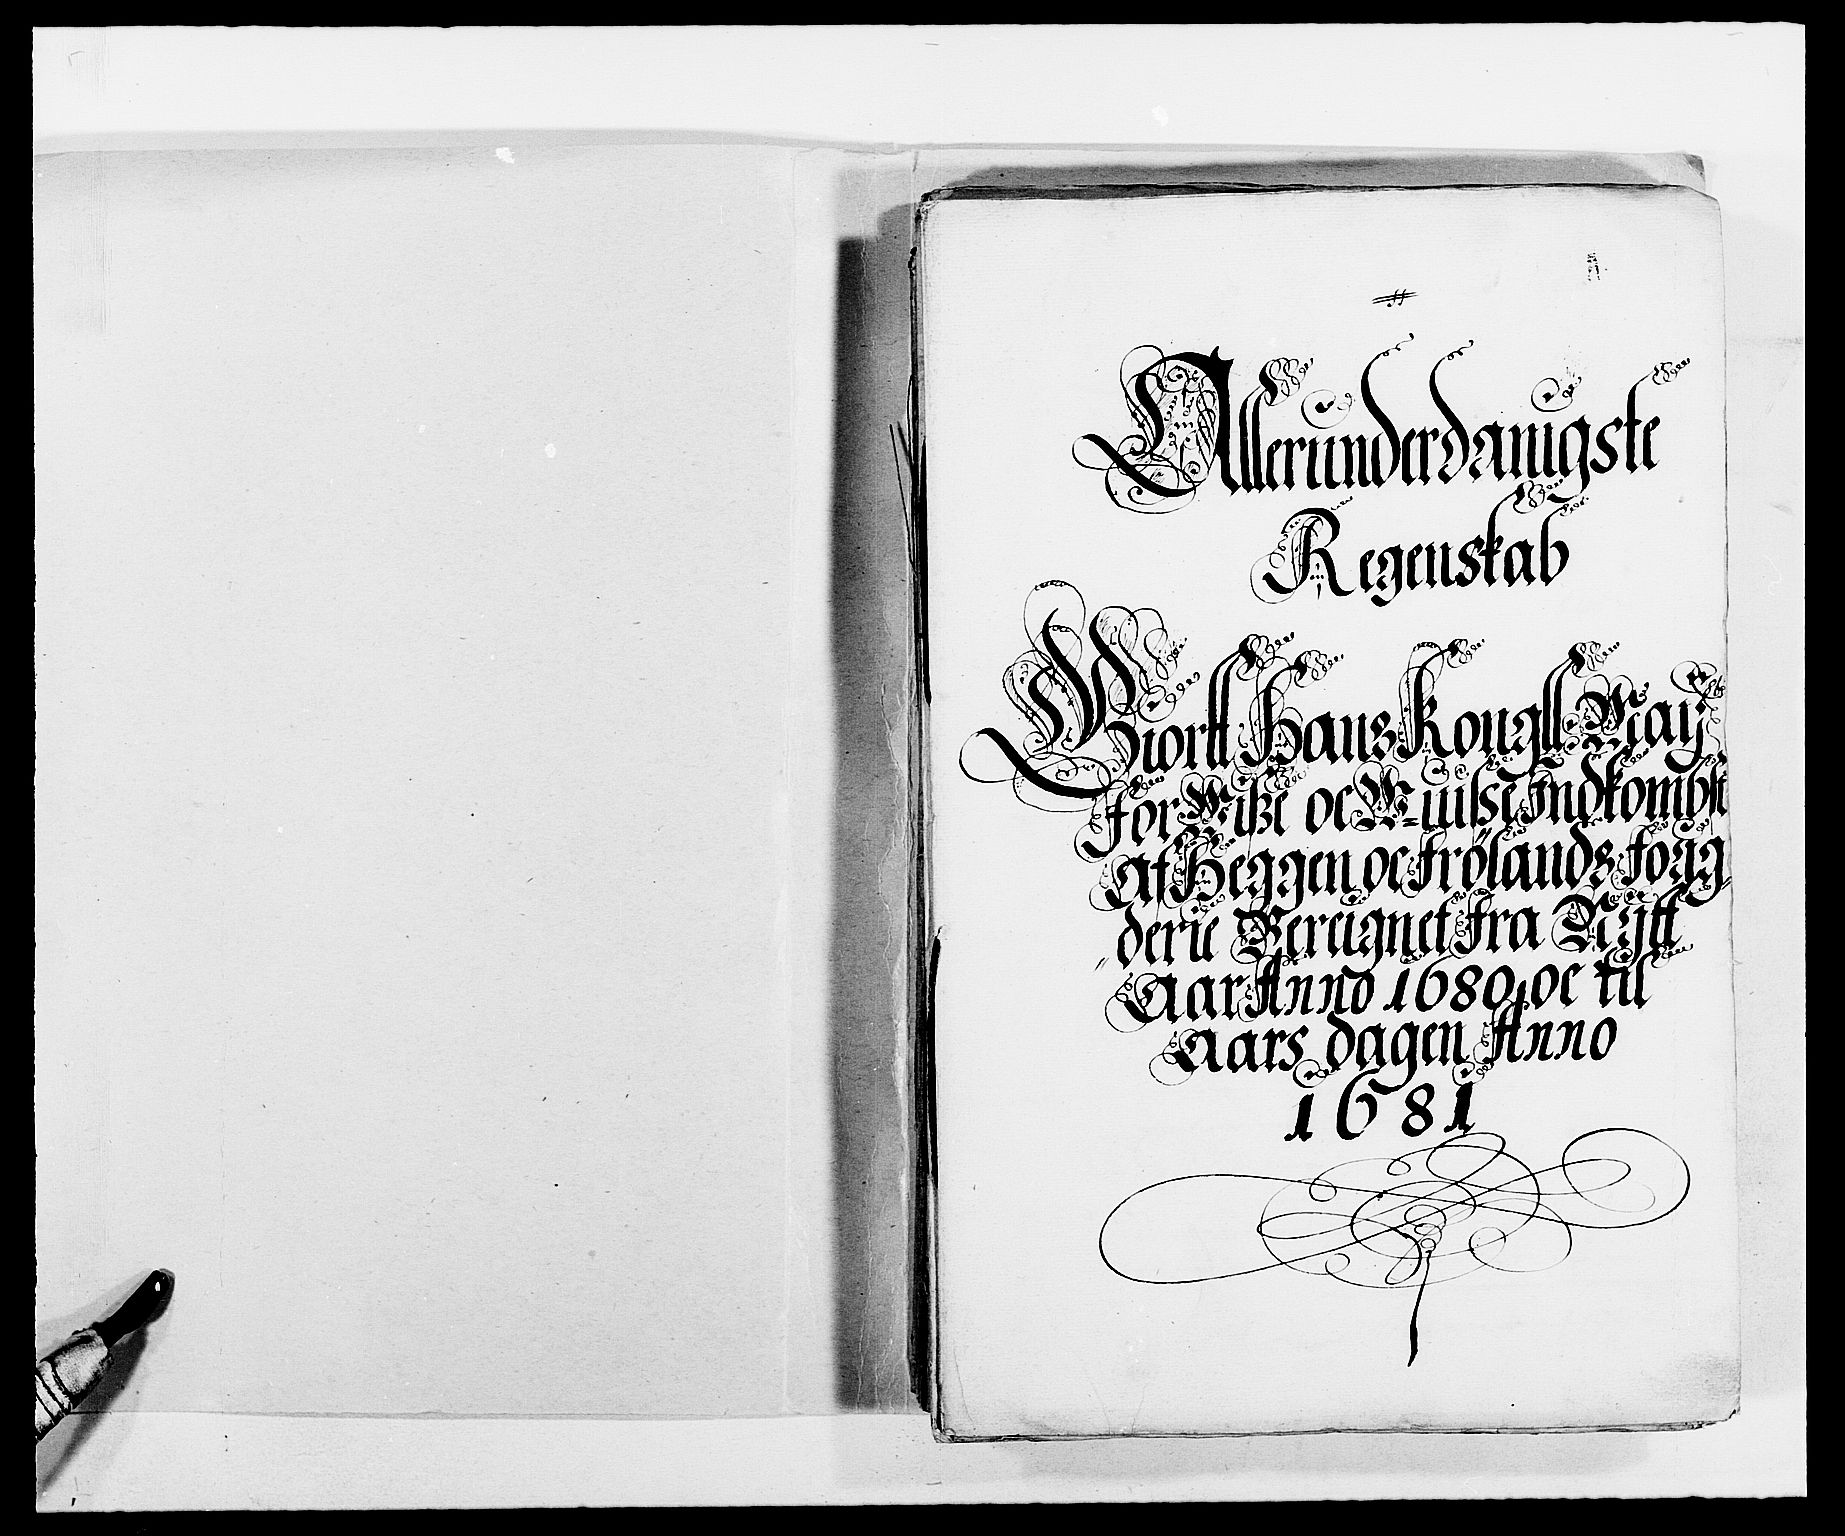 Allerunderdanigste
Regenskab
Giortt Hans Kongll May
for Wiße oc Uuiße Indkombst
Af Heggen oc Frölands fogg
derie Bereignet fra Nÿtt
Aar Anno 1680, oc til
Aars dagen Anno
1681